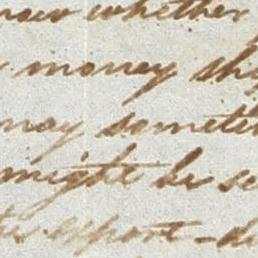 now whether
money sh
may someti
might be se
the export - d